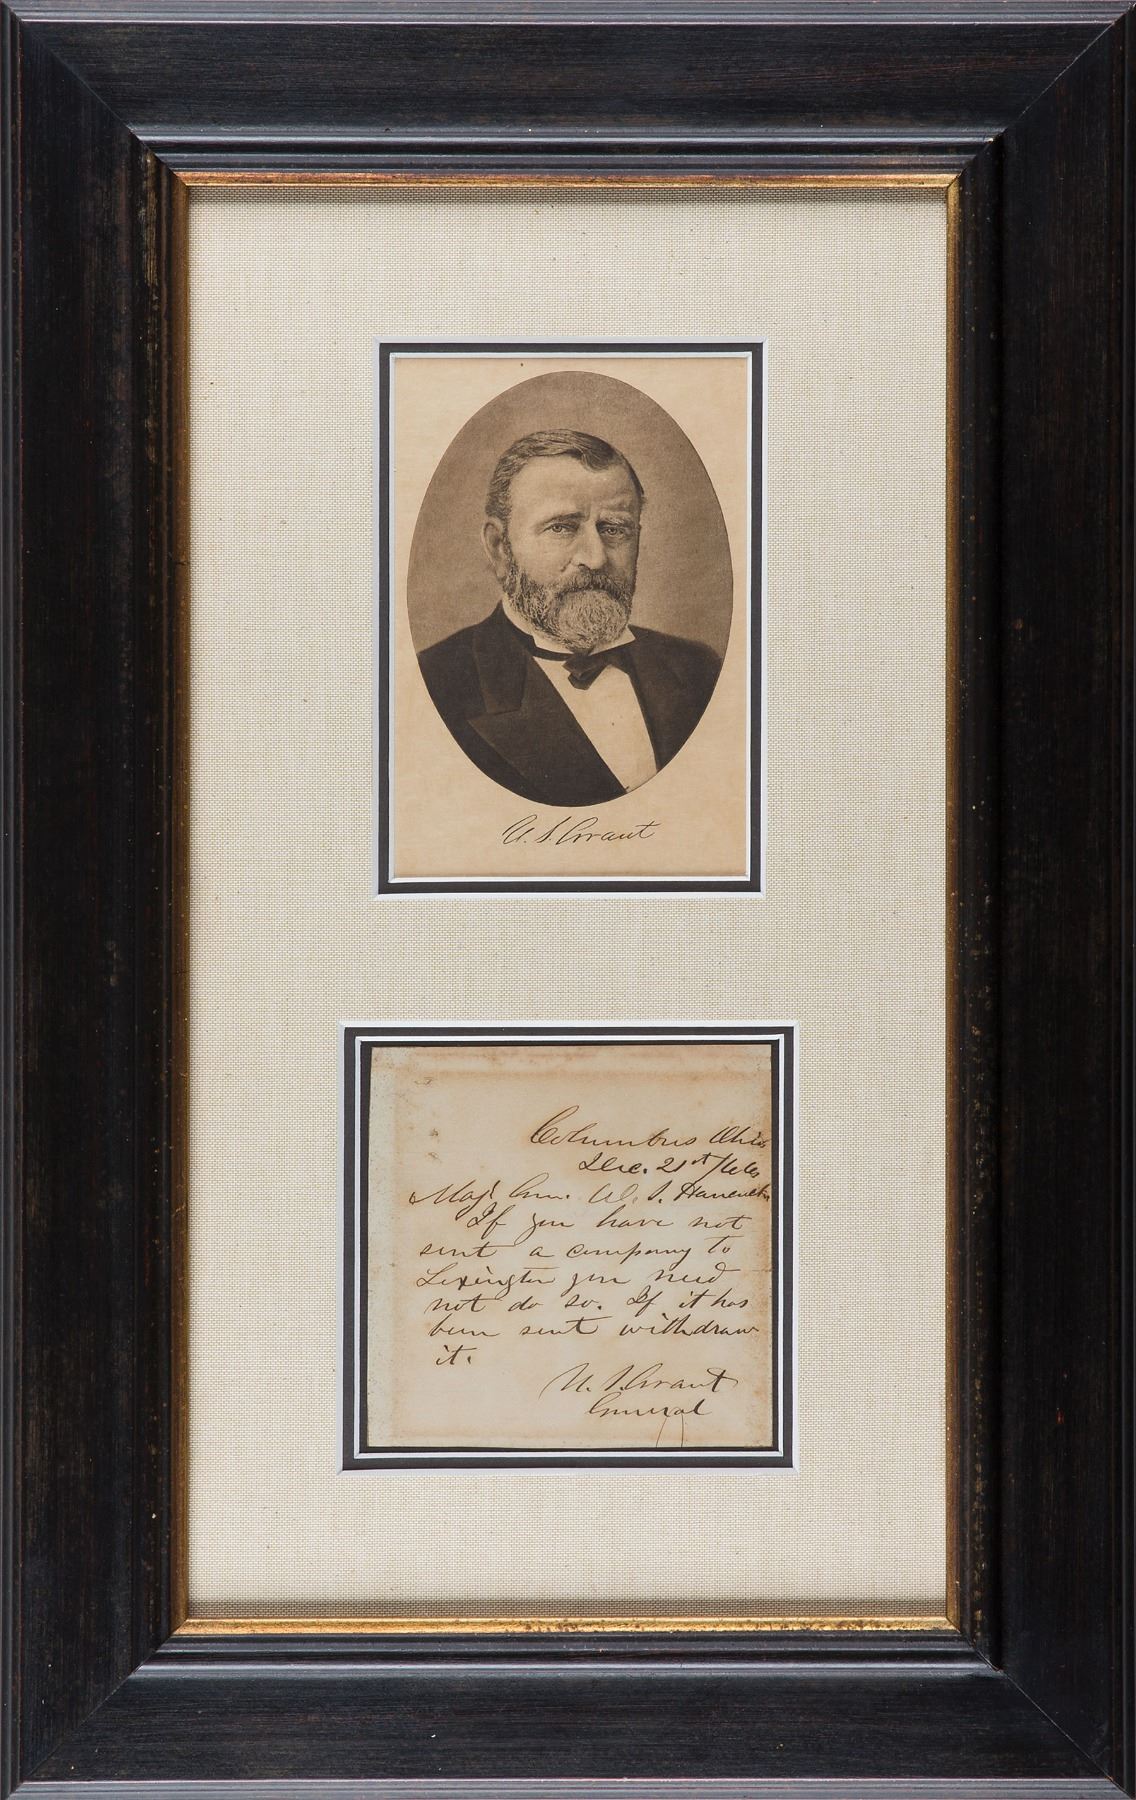 U. S. Grant
Columbus Ohio
Dec. 21st /66
Maj. Gen. W. S. Hancock
If you have not
sent a company to
Lexington you need
not do so. If it has
been sent withdraw
it.
U. S. Grant
General